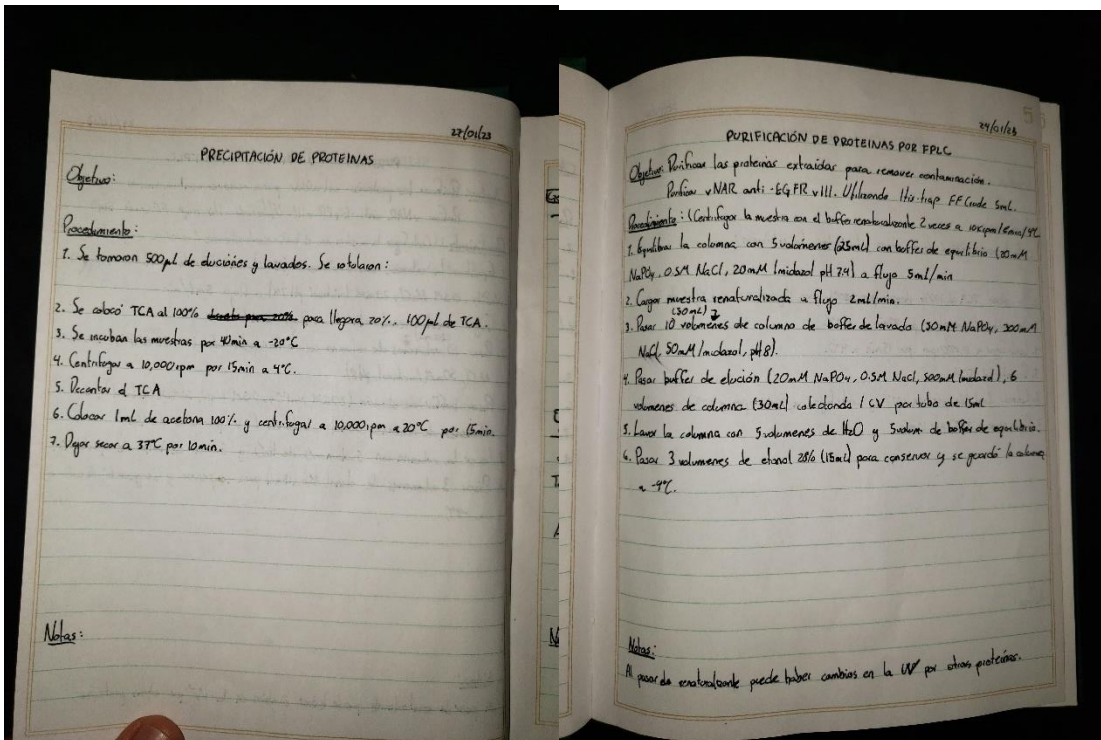 27/01/23
PRECIPITACIÓN DE PROTEINAS
Objetivo:
Procedimiento:
1. Se tomaron 500µl de eluciónes y lavados. Se rotularon:
2. Se colocó TCA al 100% para llegar a 20%. 100µl de TCA.
3. Se incuban las muestras por 40min a -20°C
4. Centrifugar a 10,000rpm por 15min a 4°C.
5. Decantar el TCA
6. Colocar 1ml de acetona 100% y centrifugar a 10,000rpm a 20°C por 15min.
7. Dejar secar a 37°C por 10min.
Notas:
24/01/23
PURIFICACIÓN DE PROTEINAS POR FPLC
Objetivo: Purificar las proteinas extraídas para remover contaminación.
Purificar vNAR anti-EGFRvIII. Utilizando His-trap FF Crude 5mL.
Procedimiento: (Centrifugar la muestra con el buffer renaturalizante 2 veces a
1. Equilibrar la columna con 5 volúmenes (25mL) con buffer de equilibrio (20mM
NaPO4, 0.5M NaCl, 20mM Imidazol pH 7.4) a flujo 5ml/min
2. Cargar muestra renaturalizada a flujo 2ml/min.
(50mL)
3. Pasar 10 volúmenes de columna de buffer de lavado (50mM NaPO4, 300mM
NaCl, 50mM Imidazol, pH8).
4. Pasar buffer de elución (20mM NaPO4, 0.5M NaCl, 500mM Imidazol), 6
volumenes de columna (30mL) colectando 1 CV por tubo de 15ml
5. Lavar la columna con 5 volumenes de H2O y 5 volum. de buffer de equilibrio.
6. Pasar 3 volumenes de etanol 20% (15mL) para conservar y se guardó la columna
a -4°C.
Notas:
Al pasar de renaturalizante puede haber cambios en la UV por otras proteínas.